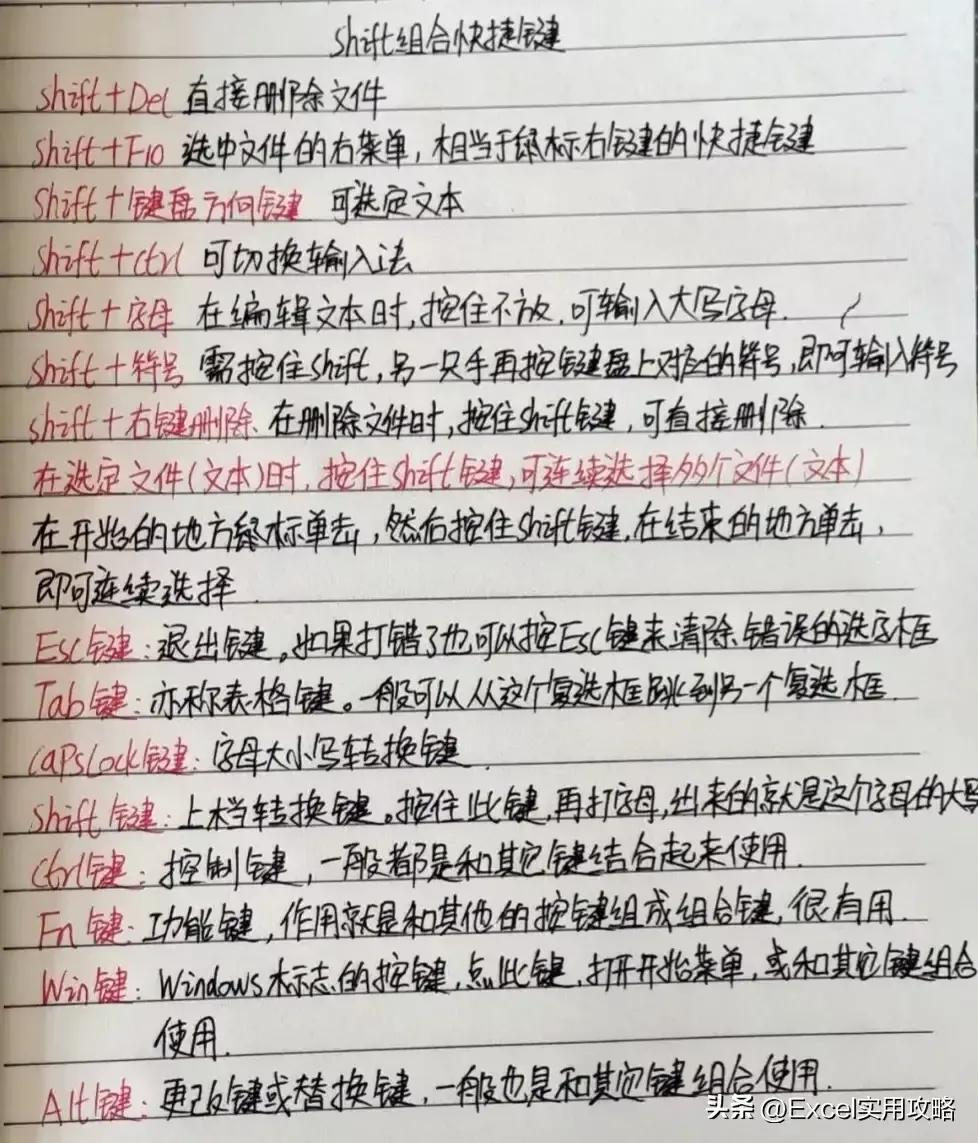 Shift组合快捷键
Shift+Del 直接删除文件
Shift+F10 选中文件的右菜单，相当于鼠标右键的快捷键
Shift+键盘方向键 可选定文本
Shift+Ctrl 可切换输入法
Shift+字母 在编辑文本时，按住不放，可输入大写字母.
Shift+符号 需按住Shift，另一只手再按键盘上对应的符号，即可输入符号
Shift+右键删除. 在删除文件时，按住Shift键，可直接删除.
在选定文件(文本)时，按住Shift键，可连续选择多个文件(文本)
在开始的地方鼠标单击，然后按住Shift键，在结束的地方单击，
即可连续选择.
Esc键：退出键。如果打错了也可以按Esc键来清除错误的选字框
Tab键：亦称表格键。一般可以从这个复选框跳到另一个复选框.
CapsLock键：字母大小写转换键.
Shift键：上档转换键。按住此键，再打字母，出来的就是这个字母的大写
Ctrl键：控制键，一般都是和其它键结合起来使用.
Fn键：功能键，作用就是和其他的按键组成组合键，很有用.
Win键：Windows标志的按键，点此键，打开开始菜单，或和其它键组合
使用.
Alt键：更改键或替换键，一般也是和其它键组合使用.
头条 @Excel实用攻略